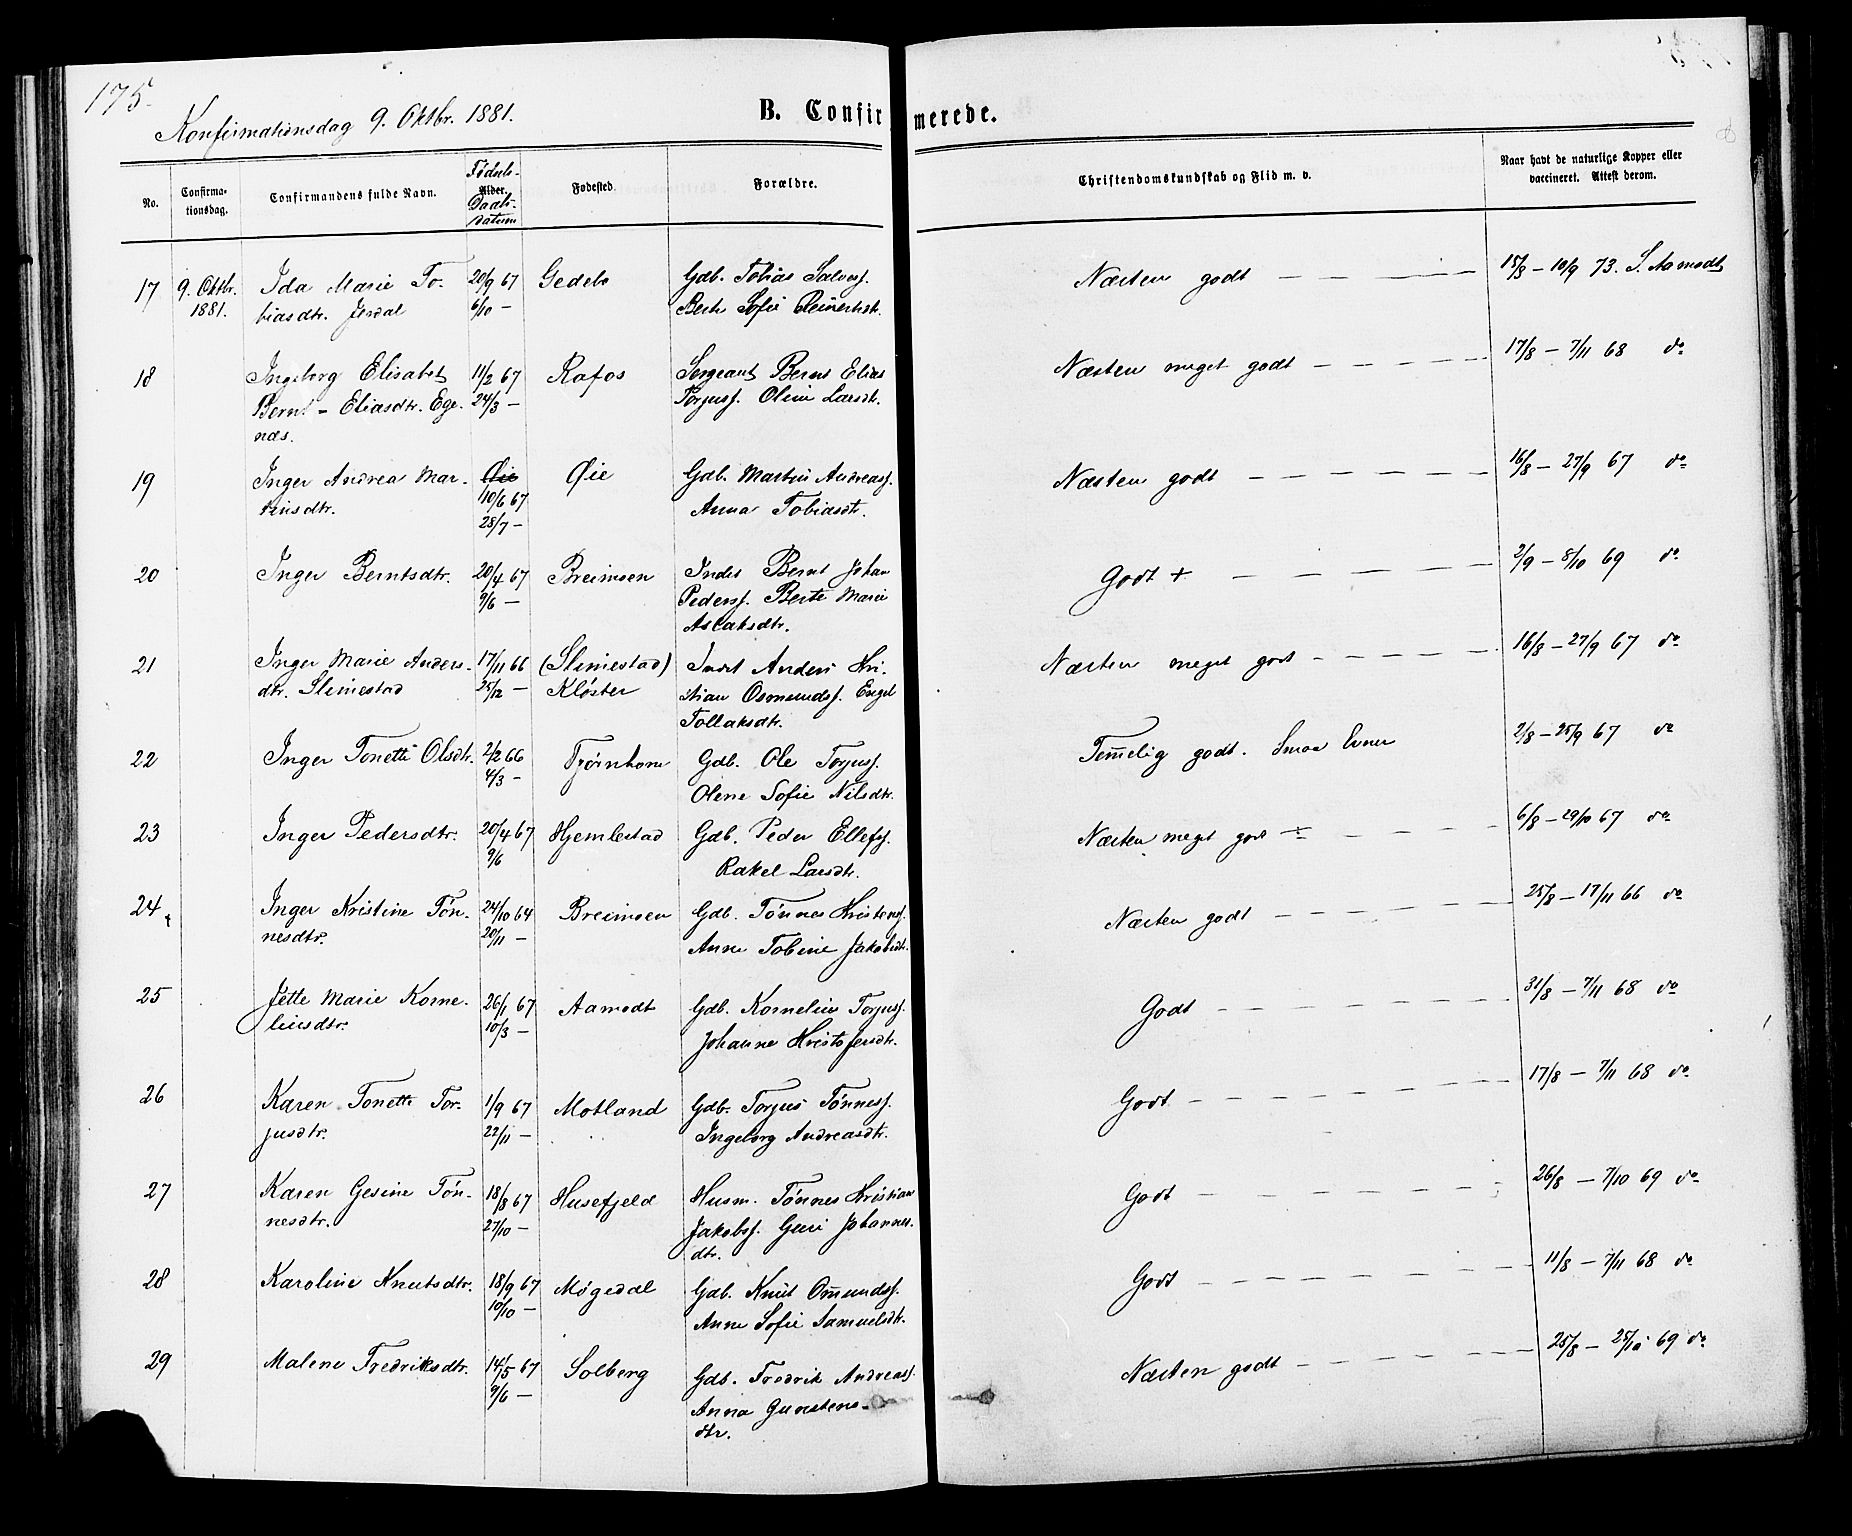 175.
Konfirmationsdag 9. Oktbr. 1881.
B. Confirmerede.
No.
Confirma-
tionsdag.
Confirmandens fulde Navn.
Fødsels-
Alder.
Daabs-
datum
Fødested
Forældre.
Christendomskundskab og Flid m. v.
Naar havt de naturlige Kopper eller
vaccineret. Attest derom.
17 9. Oktbr. Ida Marie To- 20/9 67 Gedebo Gdb. Tobias Salvesf. Næsten godt — — — — 15/8 – 10/9 73. S. Aamodt
1881. biasdtr. Jerdal 6/10 — Berte Sofie Reinertsdt.
18 Ingeborg Elisabet 11/2 67 Rafos Sergeant Bernt Elias Næsten meget godt — — — — 17/8 – 7/11 68 do
Bernt-Eliasdtr. Ege- 24/3 — Torjusf. Oline Larsdt.
næs.
19 Inger Andrea Mar- Øie Øie Gdb. Martin Andreasf. Næsten godt — — — — — 16/8 – 27/9 67 do
tinsdtr. 10/6 67 Anna Tobiasdtr.
28/7 —
20 Inger Berntsdtr. 20/4 67 Breimoen Inds Bernt Johan Godt + — — — — — 2/9 – 8/10 69 do
9/6 — Pedersf. Berte Marie
Aslaksdtr.
21 Inger Marie Anders- 17/11 66 (Slimestad) Indst Anders Kri- Næsten meget godt — — — — 16/8 – 27/9 67 do
dtr. Slimestad 25/12 — Kløster stian Osmundsf. Engel
Tollaksdtr.
22 Inger Tonette Olsdtr. 2/2 66 Tjørnhom Gdb. Ole Torjusf. Temmelig godt. Smaa Evner 2/8 – 25/9 67 do
4/3 — Olene Sofie Nilsdtr.
23 Inger Pedersdtr. 20/4 67 Hjemlestad Gdb. Peder Ellefsf. Næsten meget godt — — — — 6/8 – 29/10 67 do
9/6 Rakel Larsdtr.
24 Inger Kristine Tøn- 24/10 64 Breimoen Gdb. Tønnes Kristensf. Næsten godt — — — — — 25/8 – 17/11 66 do
nesdtr. 20/11 — Anne Tobine Jakobsdt.
25 Jette Marie Korne- 26/1 67 Aamodt Gdb. Kornelius Torjusf. Godt — — — — — 31/8 – 7/11 68 do
liusdtr. 10/3 — Johanne Kristofersdtr.
26 Karen Tonette Tor- 1/9 67 Motland Gdb. Torjus Tønnesf. Godt — — — — — 17/8 – 7/11 68 do
jusdtr. 22/11 — Ingeborg Andreasdtr.
27 Karen Gesine Tøn- 18/8 67 Husefjeld Husm. Tønnes Kristian Godt — — — — — 26/8 – 7/10 69 do
nesdtr. 27/10 — Jakobsf. Guri Johannes-
dtr.
28 Karoline Knutsdtr. 18/9 67 Møgedal Gdb. Knut Omundsf. Godt — — — — — 11/8 – 7/11 68 do
10/10 — Anne Sofie Samuelsdtr.
29 Malene Fredriksdtr. 14/5 67 Solberg Gdb. Fredrik Andreasf. Næsten godt — — — — 25/8 – 25/10 69 do
9/6 — Anna Gunstens-
dtr.